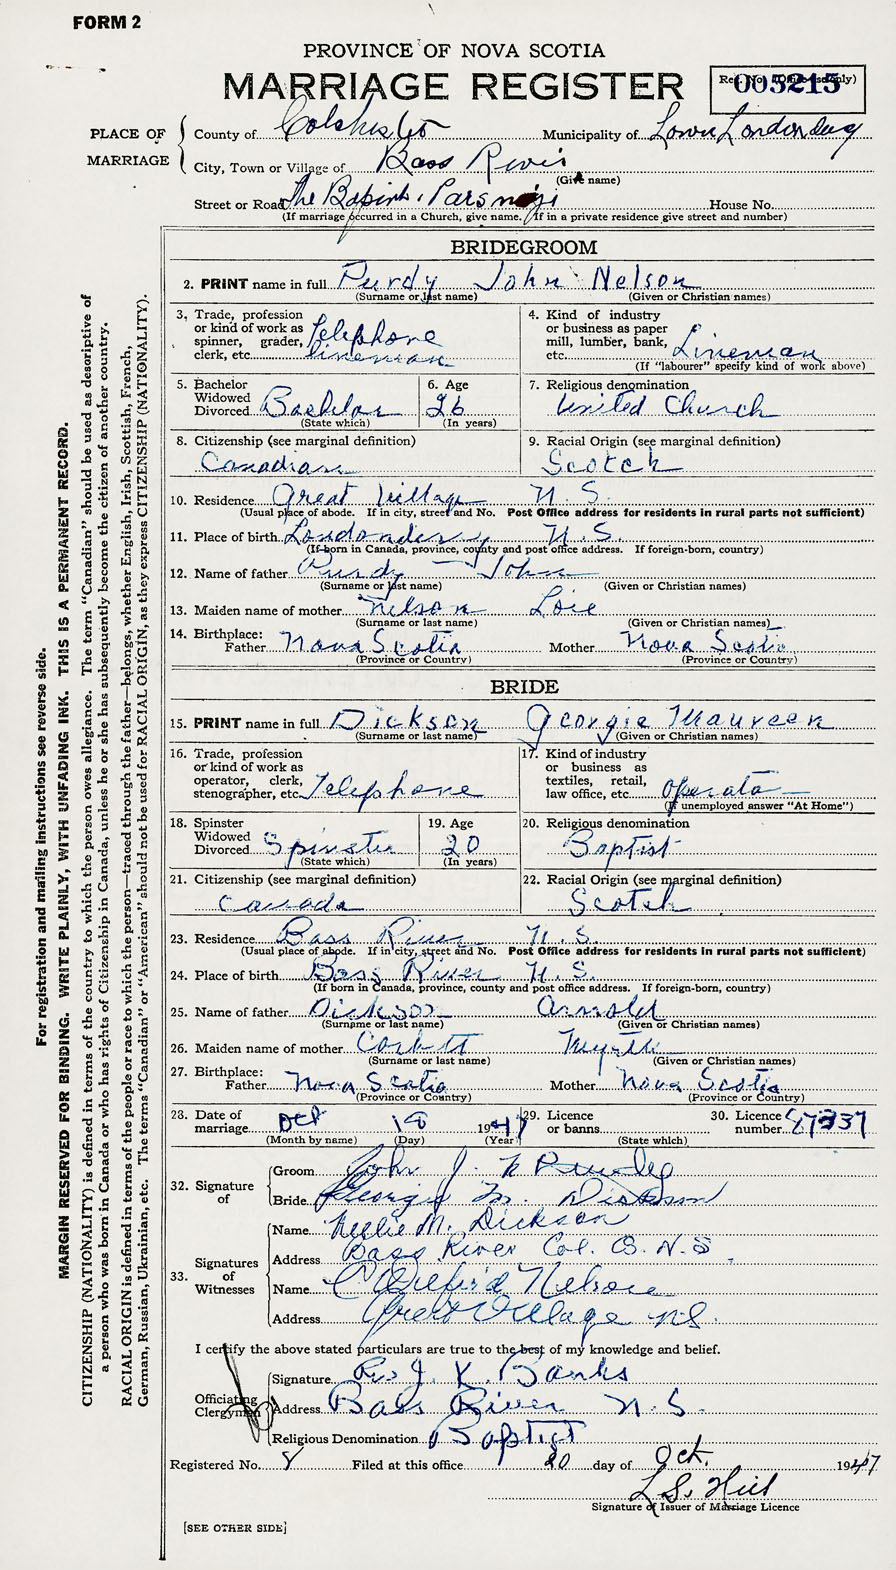 FORM 2
PROVINCE OF NOVA SCOTIA
MARRIAGE REGISTER
Reg. No. (Office use only)
005215
PLACE OF MARRIAGE
County of Colchester Municipality of Lower Londonderry
City, Town or Village of Bass River
(Give name)
Street or Road The Baptist Parsonage House No.
(If marriage occurred in a Church, give name. If in a private residence give street and number)
BRIDEGROOM
2. PRINT name in full Purdy John Nelson
(Surname or last name) (Given or Christian names)
3. Trade, profession or kind of work as spinner, grader, clerk, etc. Telephone lineman
4. Kind of industry or business as paper mill, lumber, bank, etc. Lineman
(If "labourer" specify kind of work above)
5. Bachelor Widowed Divorced Bachelor
(State which)
6. Age 26
(In years)
7. Religious denomination United Church
8. Citizenship (see marginal definition) Canadian
9. Racial Origin (see marginal definition) Scotch
10. Residence Great Village N.S.
(Usual place of abode. If in city, street and No. Post Office address for residents in rural parts not sufficient)
11. Place of birth Londonderry N.S.
(If born in Canada, province, county and post office address. If foreign-born, country)
12. Name of father Purdy John
(Surname or last name) (Given or Christian names)
13. Maiden name of mother Nelson
(Surname or last name) (Given or Christian names)
14. Birthplace: Father Nova Scotia Mother Nova Scotia
(Province or Country) (Province or Country)
BRIDE
15. PRINT name in full Dickson Georgie Maureen
(Surname or last name) (Given or Christian names)
16. Trade, profession or kind of work as operator, clerk, stenographer, etc. Telephone
17. Kind of industry or business as textiles, retail, law office, etc. Operator
(If unemployed answer "At Home")
18. Spinster Widowed Divorced Spinster
(State which)
19. Age 20
(In years)
20. Religious denomination Baptist
21. Citizenship (see marginal definition) Canada
22. Racial Origin (see marginal definition) Scotch
23. Residence Bass River N.S.
(Usual place of abode. If in city, street and No. Post Office address for residents in rural parts not sufficient)
24. Place of birth Bass River N.S.
(If born in Canada, province, county and post office address. If foreign-born, country)
25. Name of father Dickson Arnold
(Surname or last name) (Given or Christian names)
26. Maiden name of mother Corbett Myrtle
(Surname or last name) (Given or Christian names)
27. Birthplace: Father Nova Scotia Mother Nova Scotia
(Province or Country) (Province or Country)
28. Date of marriage Oct 18 1947
(Month by name) (Day) (Year)
29. Licence or banns
(State which)
30. Licence number
32. Signature of
Groom John
Bride Georgie M. Dickson
33. Signatures of Witnesses
Name Nellie M. Dickson
Address Bass River Col. Co. N.S.
Name Wilfrid Nelson
Address Great Village N.S.
I certify the above stated particulars are true to the best of my knowledge and belief.
Officiating Clergyman
Signature Rev J. K. Banks
Address Bass River N.S.
Religious Denomination Baptist
Registered No. 8 Filed at this office 20 day of Oct. 1947
L. S. Hill
Signature of Issuer of Marriage Licence
[SEE OTHER SIDE]
For registration and mailing instructions see reverse side.
MARGIN RESERVED FOR BINDING. WRITE PLAINLY, WITH UNFADING INK. THIS IS A PERMANENT RECORD.
CITIZENSHIP (NATIONALITY) is defined in terms of the country to which the person owes allegiance. The term "Canadian" should be used as descriptive of
a person who was born in Canada or who has rights of Citizenship in Canada, unless he or she has subsequently become the citizen of another country.
RACIAL ORIGIN is defined in terms of the people or race to which the person—traced through the father—belongs, whether English, Irish, Scottish, French,
German, Russian, Ukrainian, etc. The terms "Canadian" or "American" should not be used for RACIAL ORIGIN, as they express CITIZENSHIP (NATIONALITY).